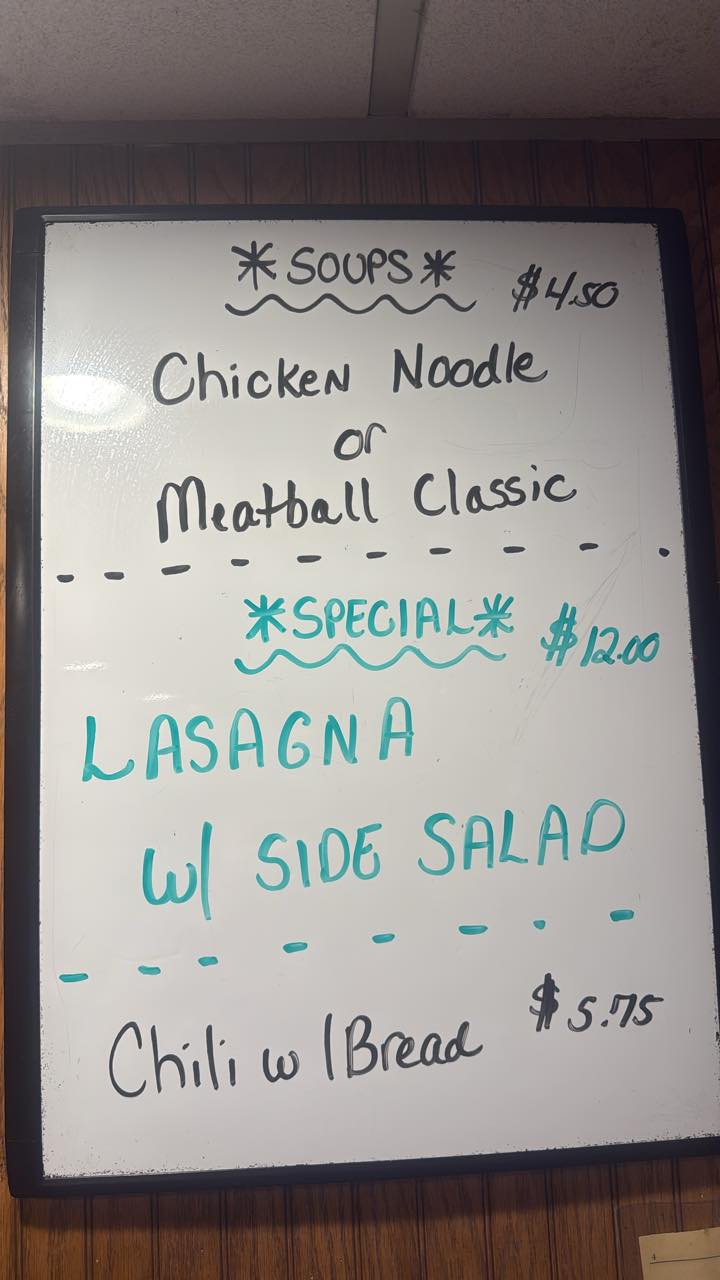 *SOUPS* $4.50
Chicken Noodle
or
Meatball Classic
*SPECIAL* $12.00
LASAGNA
w/ SIDE SALAD
Chili w/Bread $5.75